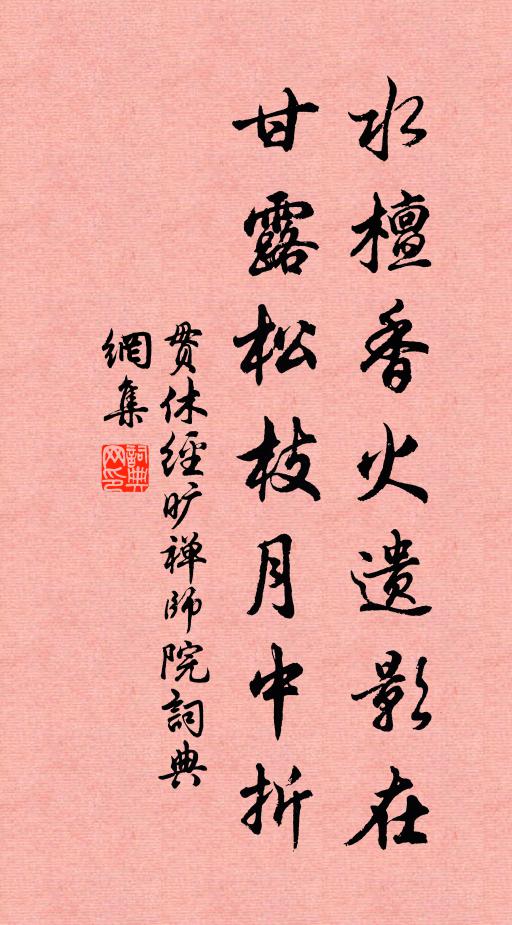 水檀香火遗影在
甘露松枝月中折
贯休經旷禅師院詞典
網集
詞典網印